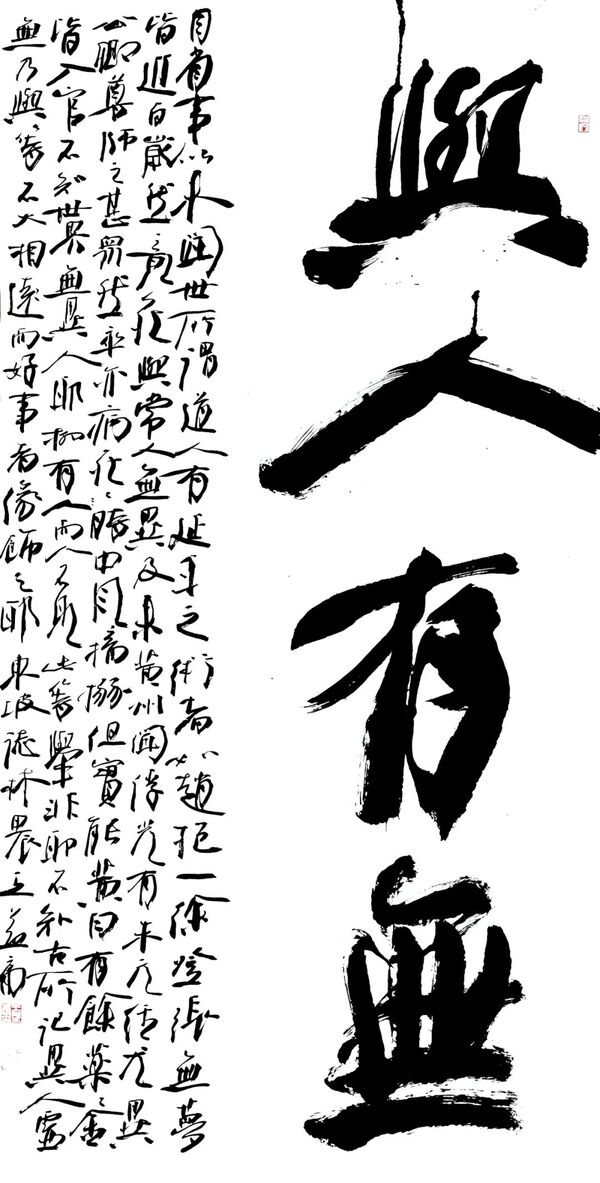 與人有無
自省事以來聞世所謂道人有延年之術者如趙抱一徐登張無夢
皆近百歲然竟死與常人無異及來黃州聞浮光有朱元經尤異
公卿尊師之甚眾然卒亦病死時中風搐搦但實能黃白有餘藥金
皆入官不知世果無異人耶抑有人而人不見此等舉非耶不知古所記異人虛
無乃與此等不大相遠而好事者緣飾之耶 東坡誌林